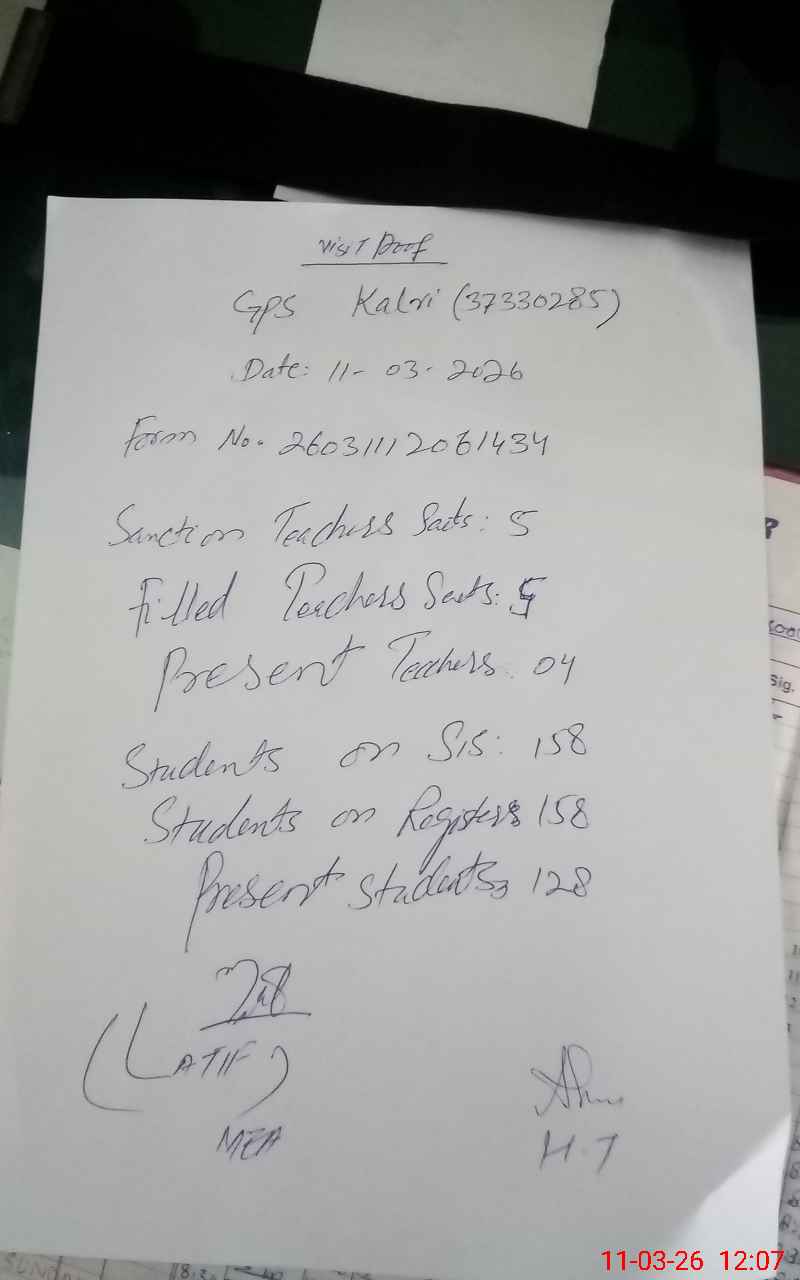 Visit Proof
GPS Kalri (37330285)
Date: 11-03-2026
Form No. 26031112061434
Sanction Teachers Seats: 5
Filled Teachers Seats: 5
Present Teachers: 04
Students on SIS: 158
Students on Registers 158
Present Students 128
(LATIF)
MEA
H.T
Sig.
11-03-26 12:07